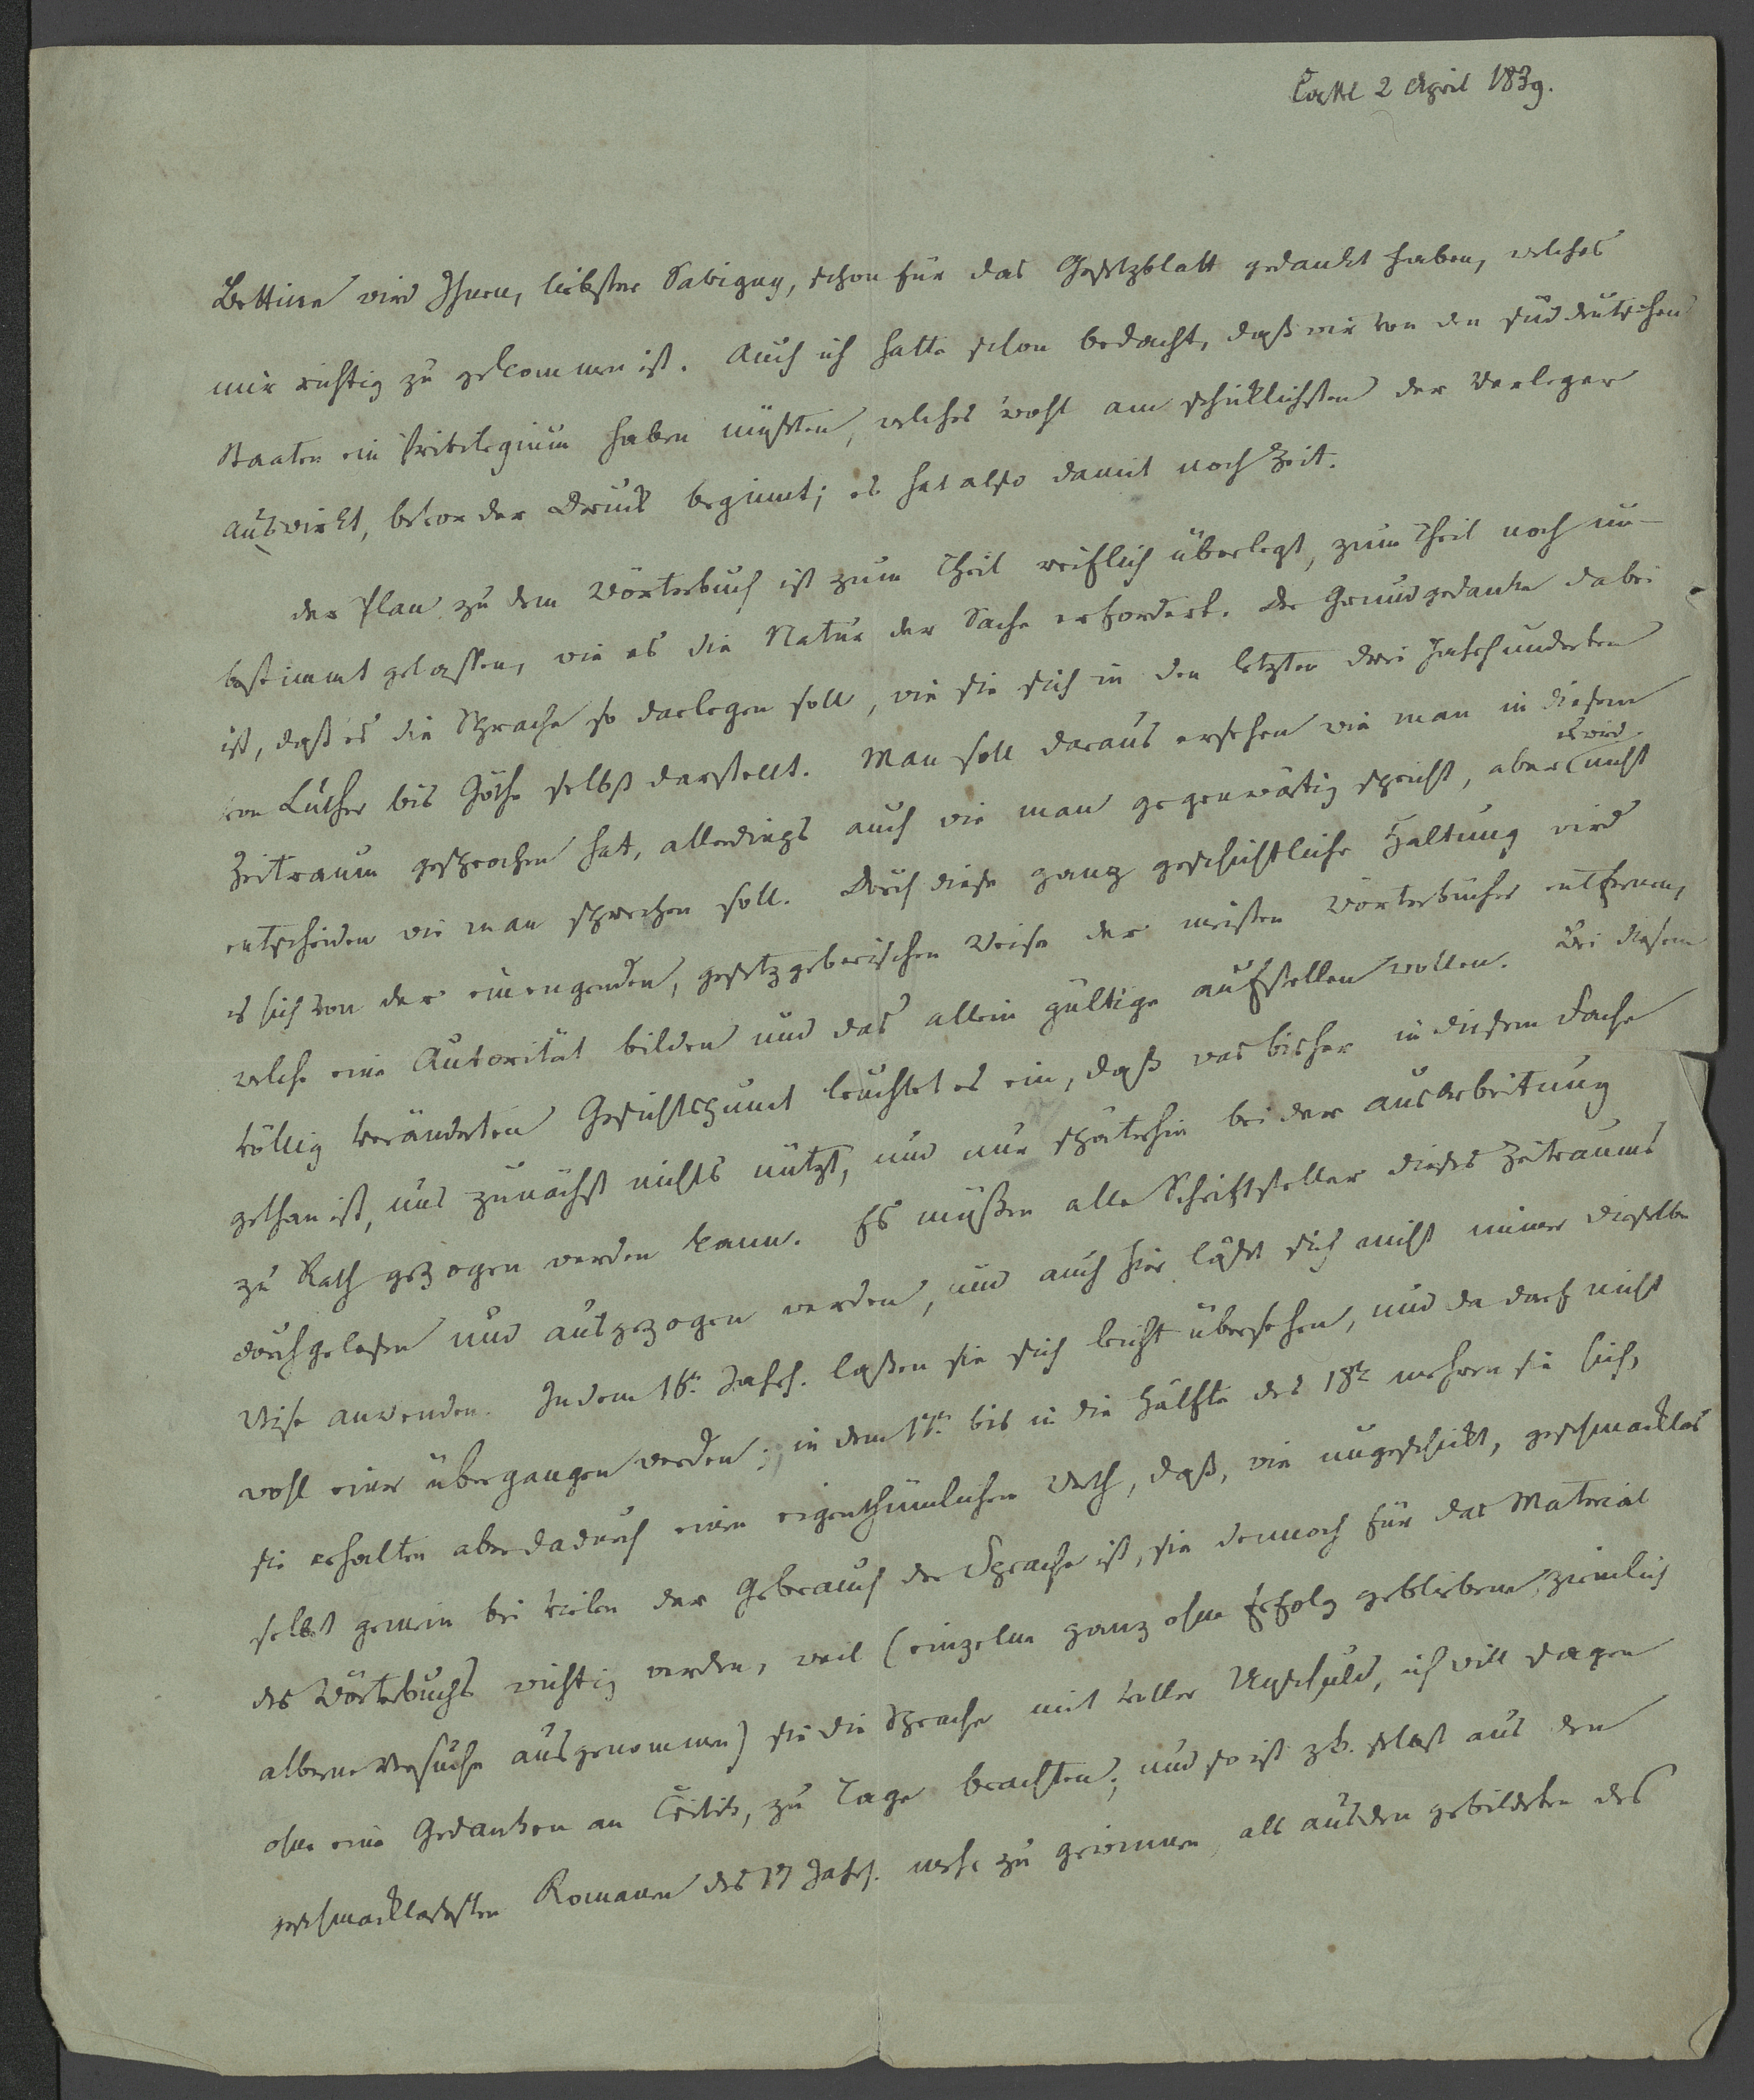 Cassel 2 April 1839.
Bettine wird Ihnen, liebster Savigny, schon für das Gesetzblatt gedankt haben, welches
mir richtig zu gekommen ist. Auch ich hatte schon bedacht, daß wir von den süddeutschen
Staaten ein Privilegium haben müßten, welches wohl am schicklichsten der Verleger
auswirkt, bevor der Druck beginnt; es hat also damit noch Zeit.
der Plan zu dem Wörterbuch ist zum Theil reiflich überlegt, zum Theil noch un-
bestimmt gelassen, wie es die Natur der Sache erfordert. Der Grundgedanke dabei
ist, daß es die Sprache so darlegen soll, wie sie sich in den letzten drei Jahrhunderten
von Luther bis Göthe selbst darstellt. Man soll daraus ersehen wie man in diesem
Zeitraum gesprochen hat, allerdings auch wie man gegenwärtig spricht, aber es wird nicht
entscheiden wie man sprechen soll. Durch diese ganz geschichtliche Haltung wird
es sich von der einengenden, gesetzgeberischen Weise der meisten Wörterbücher entfernen,
welche eine Autorität bilden und das allein gültige aufstellen wollen. Bei diesem
völlig veränderten Gesichtspunct leuchtet es ein, daß was bisher in diesem Fache
gethan ist, uns zunächst nichts nützt, und nur späterhin bei der ausarbeitung
zu Rath gezogen werden kann. Es müßen alle Schriftsteller dieses Zeitraums
durchgelesen und ausgezogen werden, und auch hier läßt sich nicht immer dieselbe
Weise anwenden. In dem 16t. Jahrh. laßen sie sich leicht übersehen, und da darf nicht
wohl einer übergangen werden; in dem 17t. bis in die Hälfte des 18t. mehren sie sich,
sie erhalten aber dadurch einen eigenthümlichen Werth, daß, wie ungeschickt, geschmacklos
selbst gemein bei vielen der Gebrauch der Sprache ist, sie dennoch für das Material
des Wörterbuchs wichtig werden, weil (einzelne ganz ohne Erfolg gebliebene, ziemlich
alberne Versuche ausgenommen) sie die Sprache mit voller Unschuld, ich will sagen
ohne eine Gedanken an Critik, zu Tage brachten; und so ist zb. selbst aus den
geschmacklosesten Romanen des 17 Jahrh. mehr zu gewinnen, als aus den gebildeten des